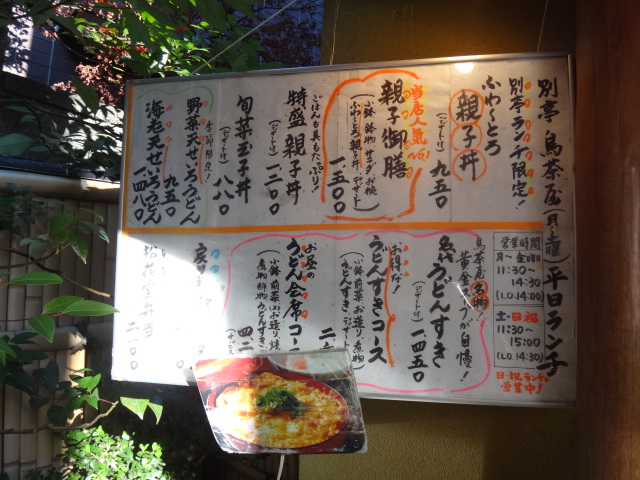 別亭 鳥茶屋 平日ランチ
別亭ランチ限定!
ふわ〜とろ
親子丼
(デザート付) 九五〇
当店人気No.1
親子御膳
(小鉢 酢物 サラダ お椀
ふわとろ親子丼 デザート)
一五〇〇
ごはんも具もたっぷり!
特盛 親子丼
(デザート付) 一一二〇
旬菜玉子丼
(デザート付) 八八〇
季節限定
野菜天せいろうどん
九五〇
海老天せいろうどん
一四八〇
営業時間
月〜金曜日
11:30〜
14:30
(L.O.14:00)
土・日・祝
11:30〜
15:00
(L.O.14:30)
日・祝ランチも
営業中!
鳥茶屋名物!
黄金スープが自慢!
名代うどんすき
(デザート付) 一四五〇
お得な!
うどんすきコース
(小鉢 前菜 お造り 煮物
うどんすき デザート)
お昼の
うどん会席コース
(小鉢 前菜 お造り 焼
煮物 酢物 うどんすき
松花堂弁当
二一〇〇